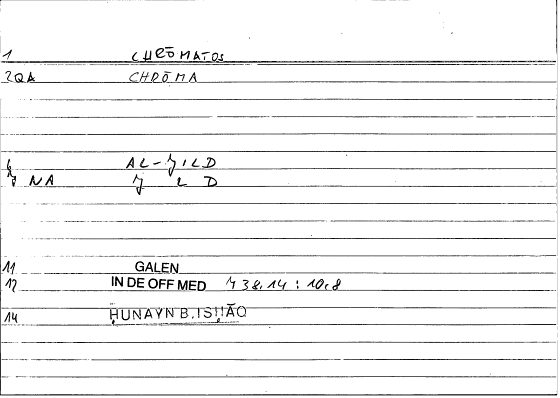 1 CHRŌMATOS
2QA CHRŌMA
6 AL-ǦILD
7 NA Ǧ L D
11 GALEN
12 IN DE OFF MED 738,14 : 10,8
14 ḤUNAYN B.ISḤĀQ